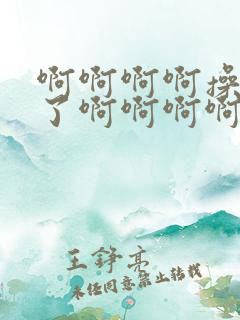 啊啊啊啊操
了啊啊啊啊
王铮亮
未经同意禁止转载